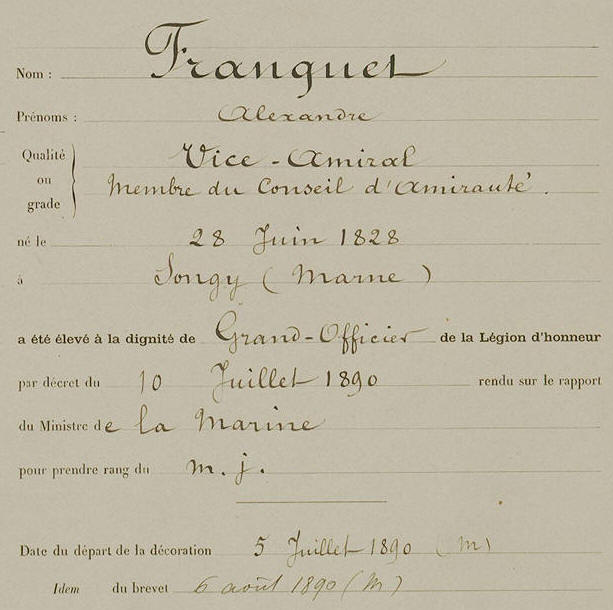 Nom : Franquet
Prénoms : Alexandre
Qualité Vice-Amiral
ou
grade Membre du Conseil d'Amirauté.
né le 28 Juin 1828
à Songy (Marne)
a été élevé à la dignité de Grand-Officier de la Légion d'honneur
par décret du 10 Juillet 1890 rendu sur le rapport
du Ministre de la Marine
pour prendre rang du m. j.
Date du départ de la décoration 5 Juillet 1890 (M)
Idem du brevet 6 août 1890 (M)